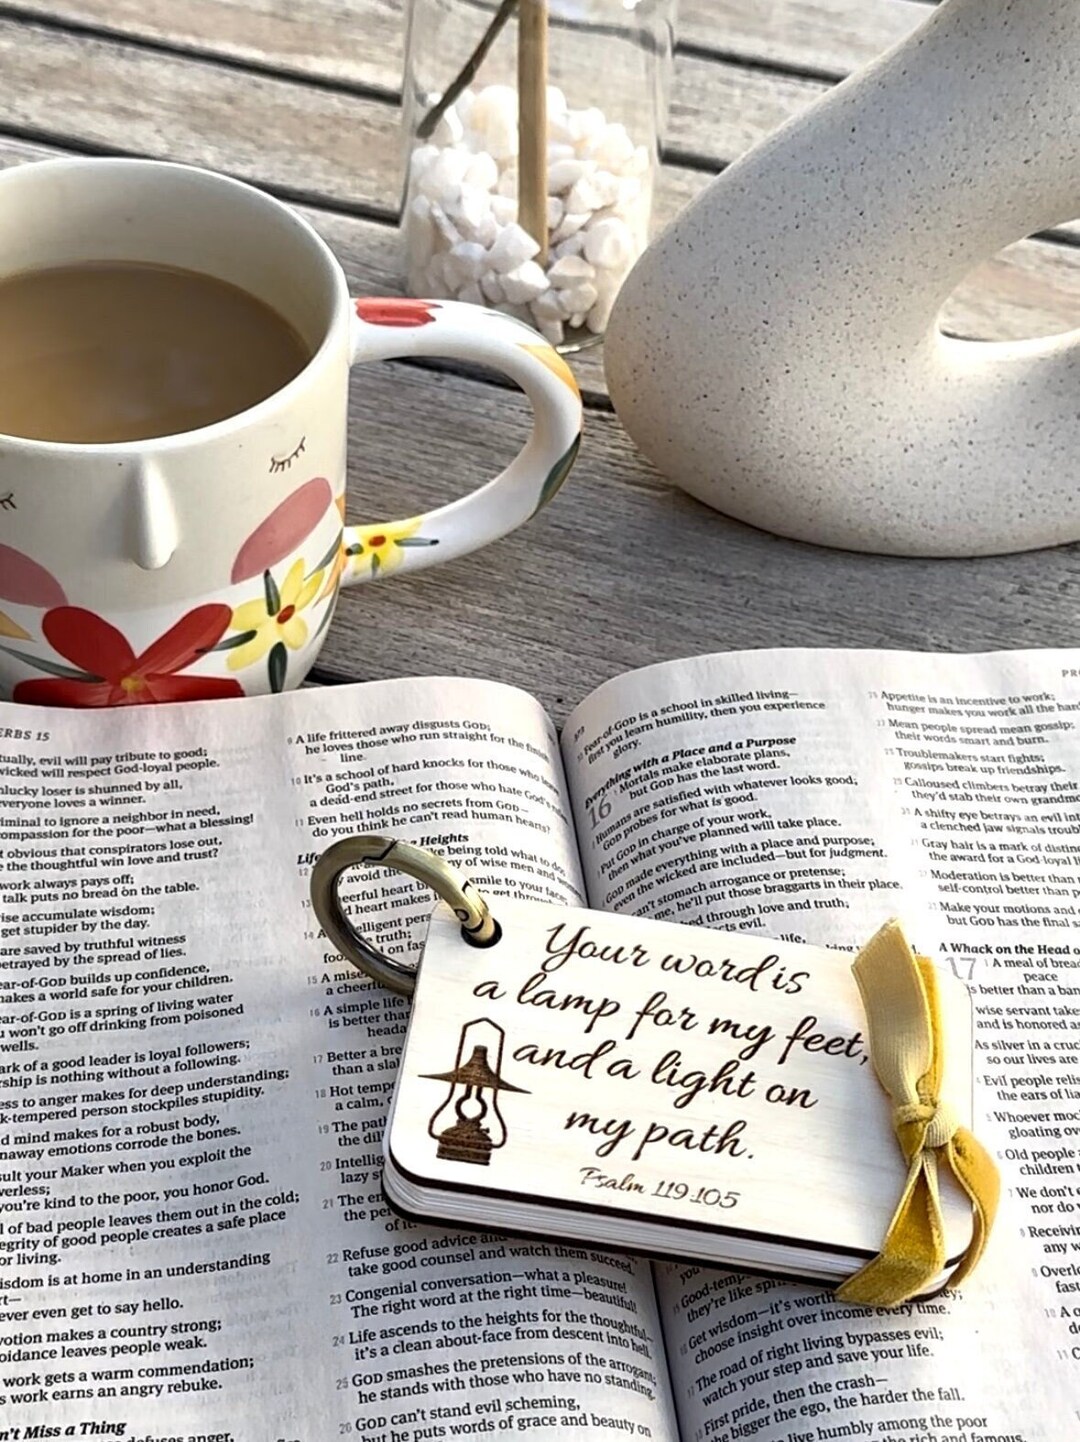 ERBS 15
tually, evil will pay tribute to good;
wicked will respect God-loyal people.
nlucky loser is shunned by all,
veryone loves a winner.
iminal to ignore a neighbor in need,
ompassion for the poor—what a blessing!
t obvious that conspirators lose out,
e the thoughtful win love and trust?
work always pays off;
talk puts no bread on the table.
ise accumulate wisdom;
get stupider by the day.
are saved by truthful witness
etrayed by the spread of lies.
ear-of-GOD builds up confidence,
makes a world safe for your children.
ear-of-GOD is a spring of living water
u won't go off drinking from poisoned
wells.
ark of a good leader is loyal followers;
rship is nothing without a following.
ess to anger makes for deep understanding;
k-tempered person stockpiles stupidity.
d mind makes for a robust body,
naway emotions corrode the bones.
sult your Maker when you exploit the
verless;
you're kind to the poor, you honor God.
l of bad people leaves them out in the cold;
egrity of good people creates a safe place
or living.
isdom is at home in an understanding
rt—
ever even get to say hello.
votion makes a country strong;
oidance leaves people weak.
work gets a warm commendation;
s work earns an angry rebuke.
n't Miss a Thing
defuses anger,
9 A life frittered away disgusts GOD;
he loves those who run straight for the finish
line.
10 It's a school of hard knocks for those who leave
God's path,
a dead-end street for those who hate God's
11 Even hell holds no secrets from GOD—
do you think he can't read human hearts?
Life Heights
12 ke being told what to do
y avoid the ny of wise men and
13 eerful heart b smile to your face;
d heart makes i to get through
14 A elligent pers
truth;
foo l on fas
15 A mise
a cheerfu
16 A simple life
is better than
heada
17 Better a bre
than a sla
18 Hot tempe
a calm, c
19 The path
the dili
20 Intellig
lazy s
21 The en
the per
of it.
22 Refuse good advice and
take good counsel and watch them succeed.
23 Congenial conversation—what a pleasure!
The right word at the right time—beautiful!
24 Life ascends to the heights for the thoughtful—
it's a clean about-face from descent into hell.
25 GOD smashes the pretensions of the arrogant;
he stands with those who have no standing.
26 GOD can't stand evil scheming,
but he puts words of grace and beauty on
33 Fear-of-GOD is a school in skilled living—
first you learn humility, then you experience
glory.
Everything with a Place and a Purpose
16 1 Mortals make elaborate plans,
but GOD has the last word.
Humans are satisfied with whatever looks good;
GOD probes for what is good.
Put GOD in charge of your work,
then what you've planned will take place.
GOD made everything with a place and purpose;
even the wicked are included—but for judgment.
can't stomach arrogance or pretense;
me, he'll put those braggarts in their place.
d through love and truth;
cts evil.
life,
Your word is
a lamp for my feet,
and a light on
my path.
Psalm 119:105
Good-temp
they're like spri
Get wisdom—it's worth ey;
choose insight over income every time.
The road of right living bypasses evil;
watch your step and save your life.
First pride, then the crash—
the bigger the ego, the harder the fall.
live humbly among the poor
the rich and famous.
PR
26 Appetite is an incentive to work;
hunger makes you work all the hard
27 Mean people spread mean gossip;
their words smart and burn.
28 Troublemakers start fights;
gossips break up friendships.
29 Calloused climbers betray their
they'd stab their own grandmo
30 A shifty eye betrays an evil int
a clenched jaw signals troub
31 Gray hair is a mark of distinc
the award for a God-loyal li
32 Moderation is better than m
self-control better than p
33 Make your motions and c
but GOD has the final s
A Whack on the Head o
17 1 A meal of bread
peace
is better than a ban
wise servant take
and is honored as
As silver in a cruc
so our lives are
Evil people relis
the ears of lia
Whoever moc
gloating ov
Old people a
children t
We don't e
nor do w
Receivin
any w
Overlo
fast
10 A q
11 C